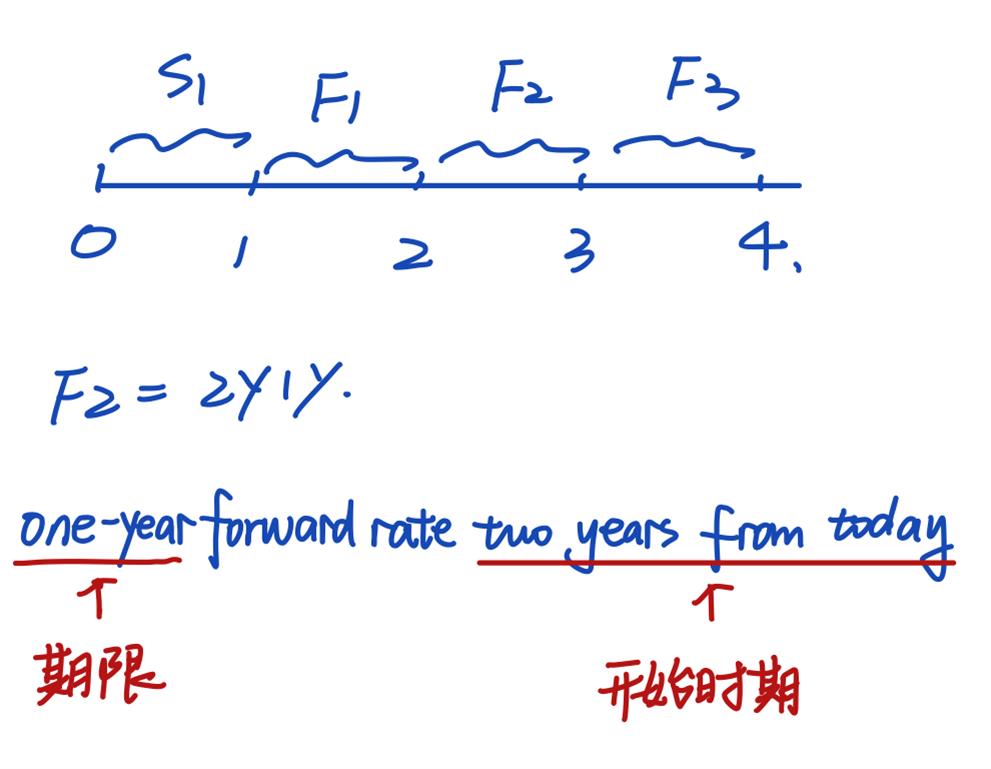 S1 F1 F2 F3
0 1 2 3 4.
F2 = 2Y1Y.
one-year forward rate two years from today
期限 开始时期